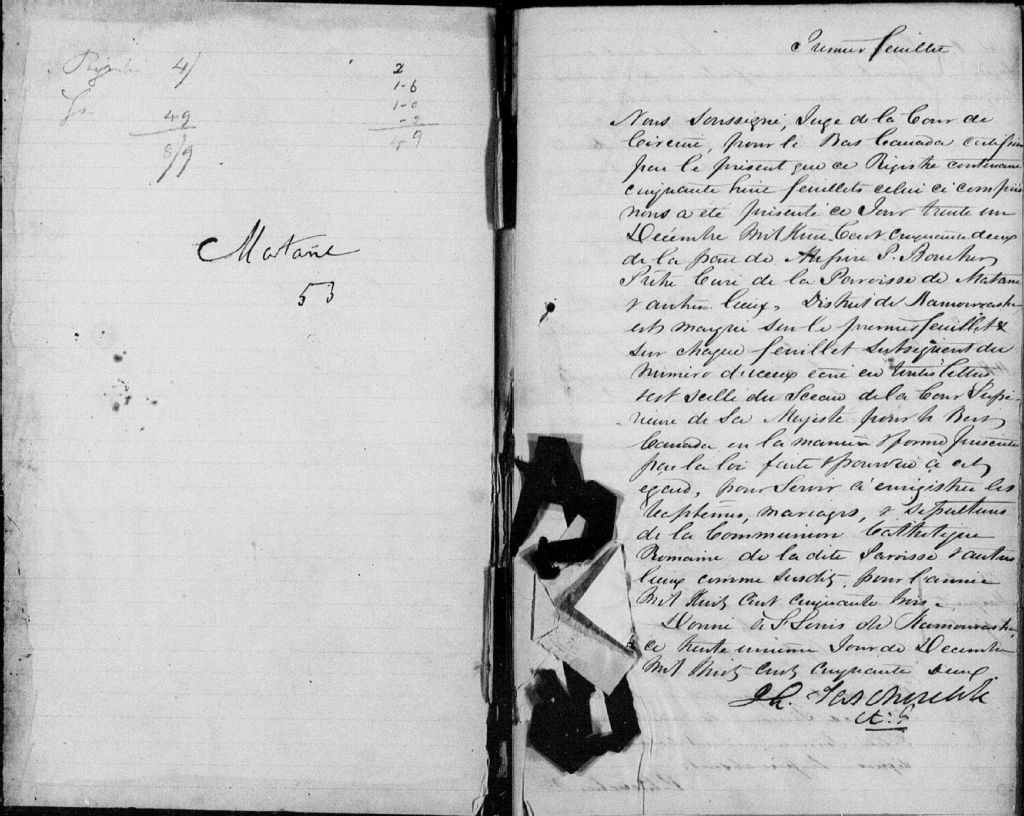 Registre 4/
49
8/9
2
1-6
1-0
-2
9
Matane
53
Premier feuillet
Nous Soussigné, Juge de la Cour de
Circuit, pour le Bas Canada certifions
par le présent que ce Régistre contenant
cinquante huit feuillets celui ci compris
nous a été présenté ce Jour trente un
Décembre Mil Huit Cent cinquante deux
de la part de Messire P. Boucher
Prêtre Curé de la Paroisse de Matane
& autres lieux, District de Kamouraska
est marqué sur le premier feuillet &
sur chaque feuillet subséquent du
Numéro d'iceux écrit en toutes lettres
est scellé du Sceau de la Cour Supé-
rieure de Sa Majesté pour le Bas
Canada en la manière & forme prescrite
par la loi faite & pourvue à cet
égard, pour Servir à enrégistrer les
Baptêmes, mariages, & sépultures
de la Communion Catholique
Romaine de la dite Paroisse & autres
lieux comme susdit, pour l'année
Mil Huit Cent cinquante trois.
Donné à St Louis de Kamouraska,
ce trente unième Jour de Décembre
Mil Huit Cent Cinquante deux
Taschereau